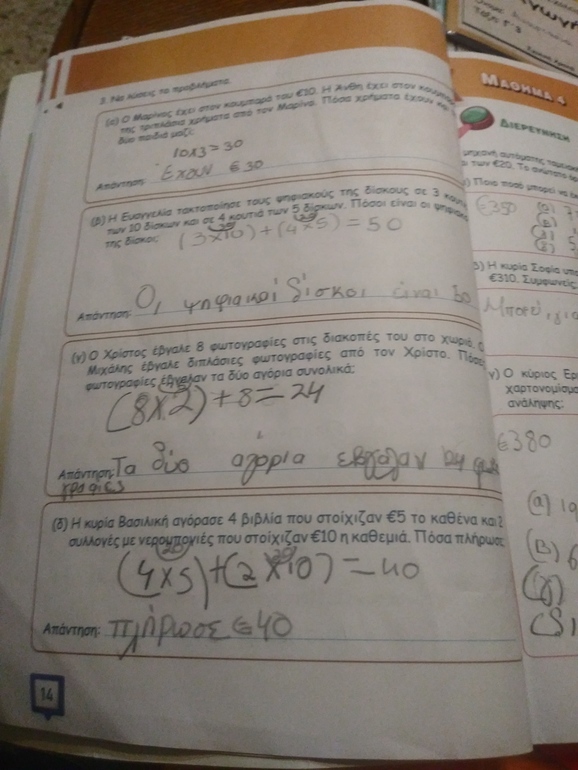 3. Να λύσεις τα προβλήματα.
(α) Ο Μαρίνος έχει στον κουμπαρά του €10. Η Ανθή έχει στον κουμπαρά
της τριπλάσια χρήματα από τον Μαρίνο. Πόσα χρήματα έχουν και
δύο παιδιά μαζί;
10x3=30
Απάντηση: Έχουν €30
(β) Η Ευαγγελία τακτοποίησε τους ψηφιακούς της δίσκους σε 3
των 10 δίσκων και σε 4 κουτιά των 5 δίσκων. Πόσοι είναι οι ψηφιακοί
της δίσκοι;
(3x10)+(4x5)=50
Απάντηση: Οι ψηφιακοί δίσκοι είναι 50
(γ) Ο Χρίστος έβγαλε 8 φωτογραφίες στις διακοπές του στο χωριό. Ο
Μιχάλης έβγαλε διπλάσιες φωτογραφίες από τον Χρίστο. Πόσες
φωτογραφίες έβγαλαν τα δύο αγόρια συνολικά;
(8x2)+8=24
Απάντηση: Τα δύο αγόρια εβγαλαν 24 φωτο
γραφίες
(δ) Η κυρία Βασιλική αγόρασε 4 βιβλία που στοίχιζαν €5 το καθένα και 2
συλλογές με νερομπογιές που στοίχιζαν €10 η καθεμιά. Πόσα πλήρωσε
20 20
(4x5)+(2x10)=40
Απάντηση: πλήρωσε €40
14
ΜΑΘΗΜΑ 4
ΔΙΕΡΕΥΝΗΣΗ
των €20.
Ποιο ποσό μπορεί να
€350
Η κυρία Σοφία
€310. Συμφωνείς
Μπορεί, για
γ) Ο κύριος
χαρτονομίσμα
ανάληψης;
€380
(α) 10
(β) 6
(γ)
(δ)